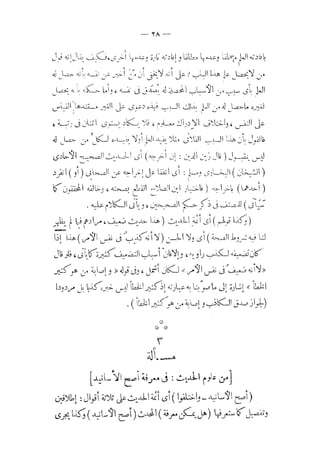 — ٢٨ —
بافادته العلم مطلقا وعدمها مطلقا وإفادته تارة وعدمها أخرى، فكيف يقال إنه قول
من لا يحصل على هذا الباب؛ على أنه لا يخفى أن من أخبر عن نفسه بأنه حصل له
العلم بأى سبب من الأسباب المحصلة له يصدق فى نفسه، وأما حكمه بأنه يحصل
لغيره ما حصل له من العلم بذلك السبب فهذه دعوى على الغير مستندها القياس
على النفس، واختلاف الإدراك معلوم، فلا يكاد يستوى اثنان فى رتبة،
فالقول بأن هذا السبب الفلانى مثلا يفيد العلم أولا يفيده لكل من حصل له
ليس بمقبول (قال زين الدين: إن أخرجه) أى الحديث الصحيح الآحادى
(الشيخان) البخارى ومسلم: أى اتفقا على إخراجه عن الصحابى (أو) انفرد
(أحدهما) باخراجه (فاختيار ابن الصلاح القطع بصحته، وخالفه المحققون كما
سيأتى) للمصنف فى ذكر حكم الصحيحين، ويأتى الكلام عليه.
(وكذا قولهم) أى أئمة الحديث (هذا حديث ضعيف، مرادهم فيما لم يظهر
لنا فيه شروط الصحة) أى ولا الحسن (لا أنه كذب فى نفس الأمر) هذا إذا
كان تضعيفه لكذب راويه، وإلا فان أسباب التضعيف كثيرة كما يأتى، فلو قال
«لا أنه ضعيف فى نفس الأمر» لكان أشمل، وفى قوله «وإصابة من هو كثير
الخطأ» إشارة إلى ما صوبنا به عبارته إذ كثير الخطأ ليس خبره كذبا بل مردودا
(لجواز صدق الكاذب وإصابة من هو كثير الخطأ).
٣
مسألة
[من علوم الحديث: فى معرفة أصح الأسانيد]
(أصح الأسانيد ــ واختلفوا) أى أئمة الحديث على ثلاثة أقوال: إطلاقين
وتفصيل كما ستعرفها (هل يمكن معرفة) المحدث (أصح الأسانيد) وكذا يجرى